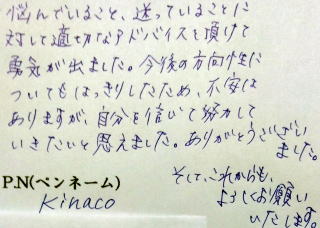 悩んでいること、迷っていることに
対して適切なアドバイスを頂けて
勇気が出ました。今後の方向性に
ついてもはっきりしたため、不安は
ありますが、自分を信じて努力して
いきたいと思えました。ありがとうございい
ました。
そして、これからも、
よろしくお願い
いたします。
P.N(ペンネーム)
Kinaco